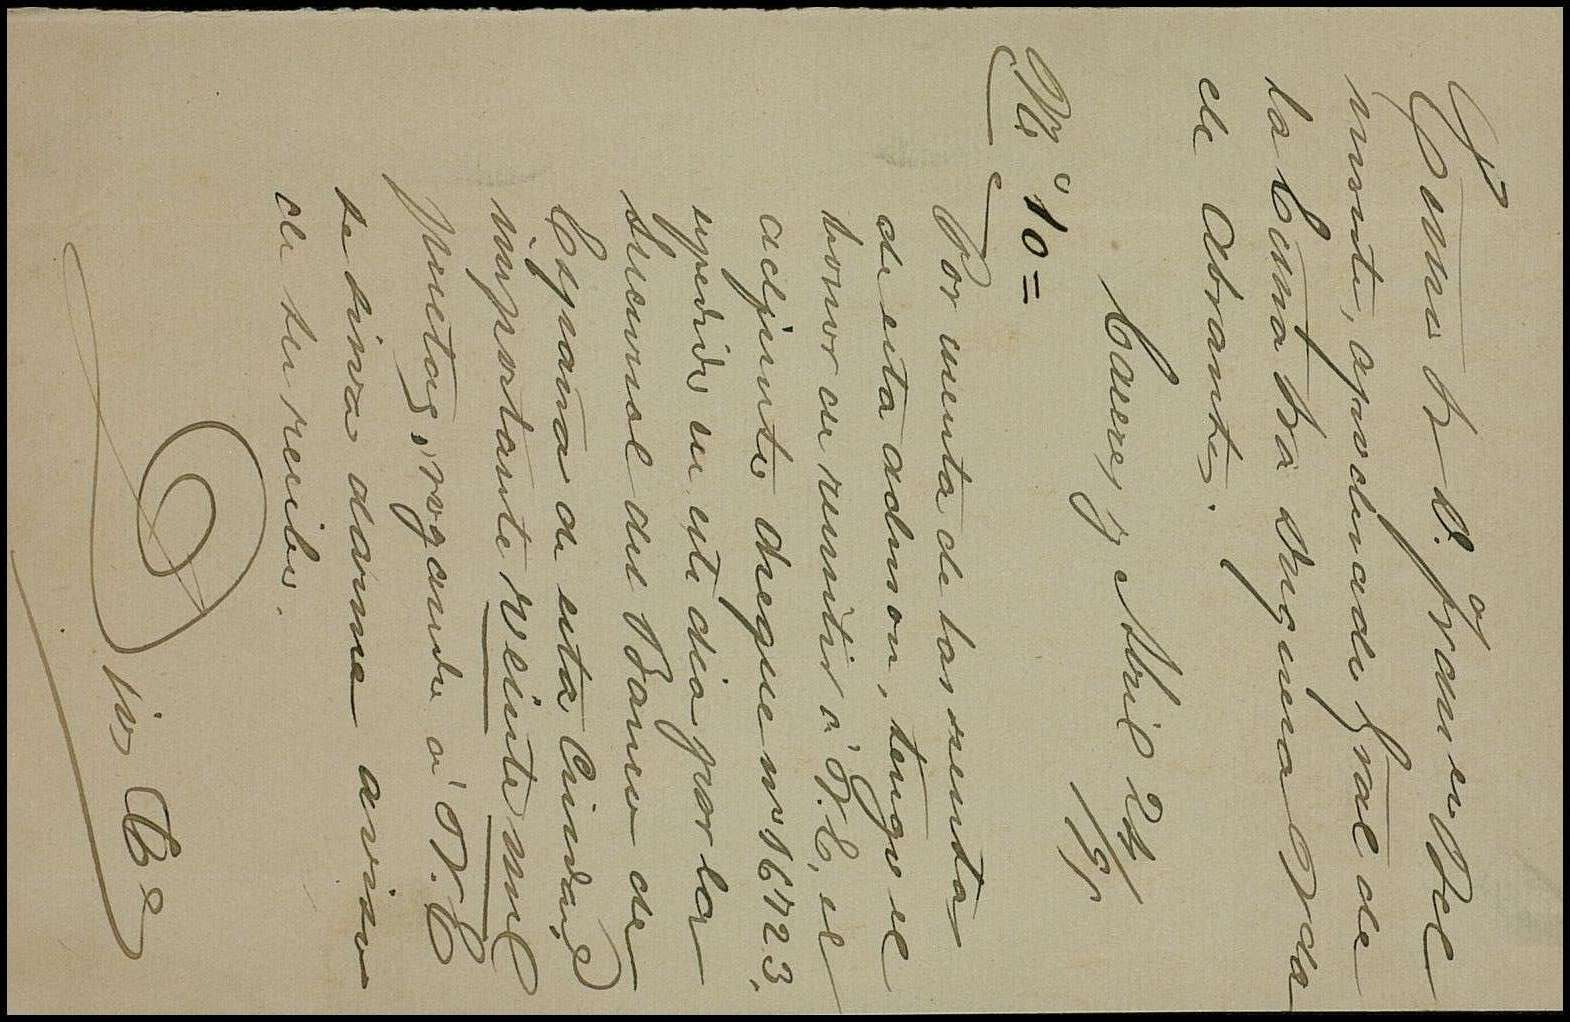 Exmo Sr D. Franco Bel
monte, apoderado Gral de
la Exma Sra Duquesa Vda
de Abrantes.
Caceres y Abril 24/91
Mi
No 10=
Por cuenta de las rentas
de esta admon, tengo el
honor de remitir á V.E. el
adjunto cheque no 16723,
expedido en este dia por la
Sucursal del Banco de
España de esta Ciudad
importante veinte mil
pesetas, rogando á V.E
se sirva darme aviso
de su recibo.